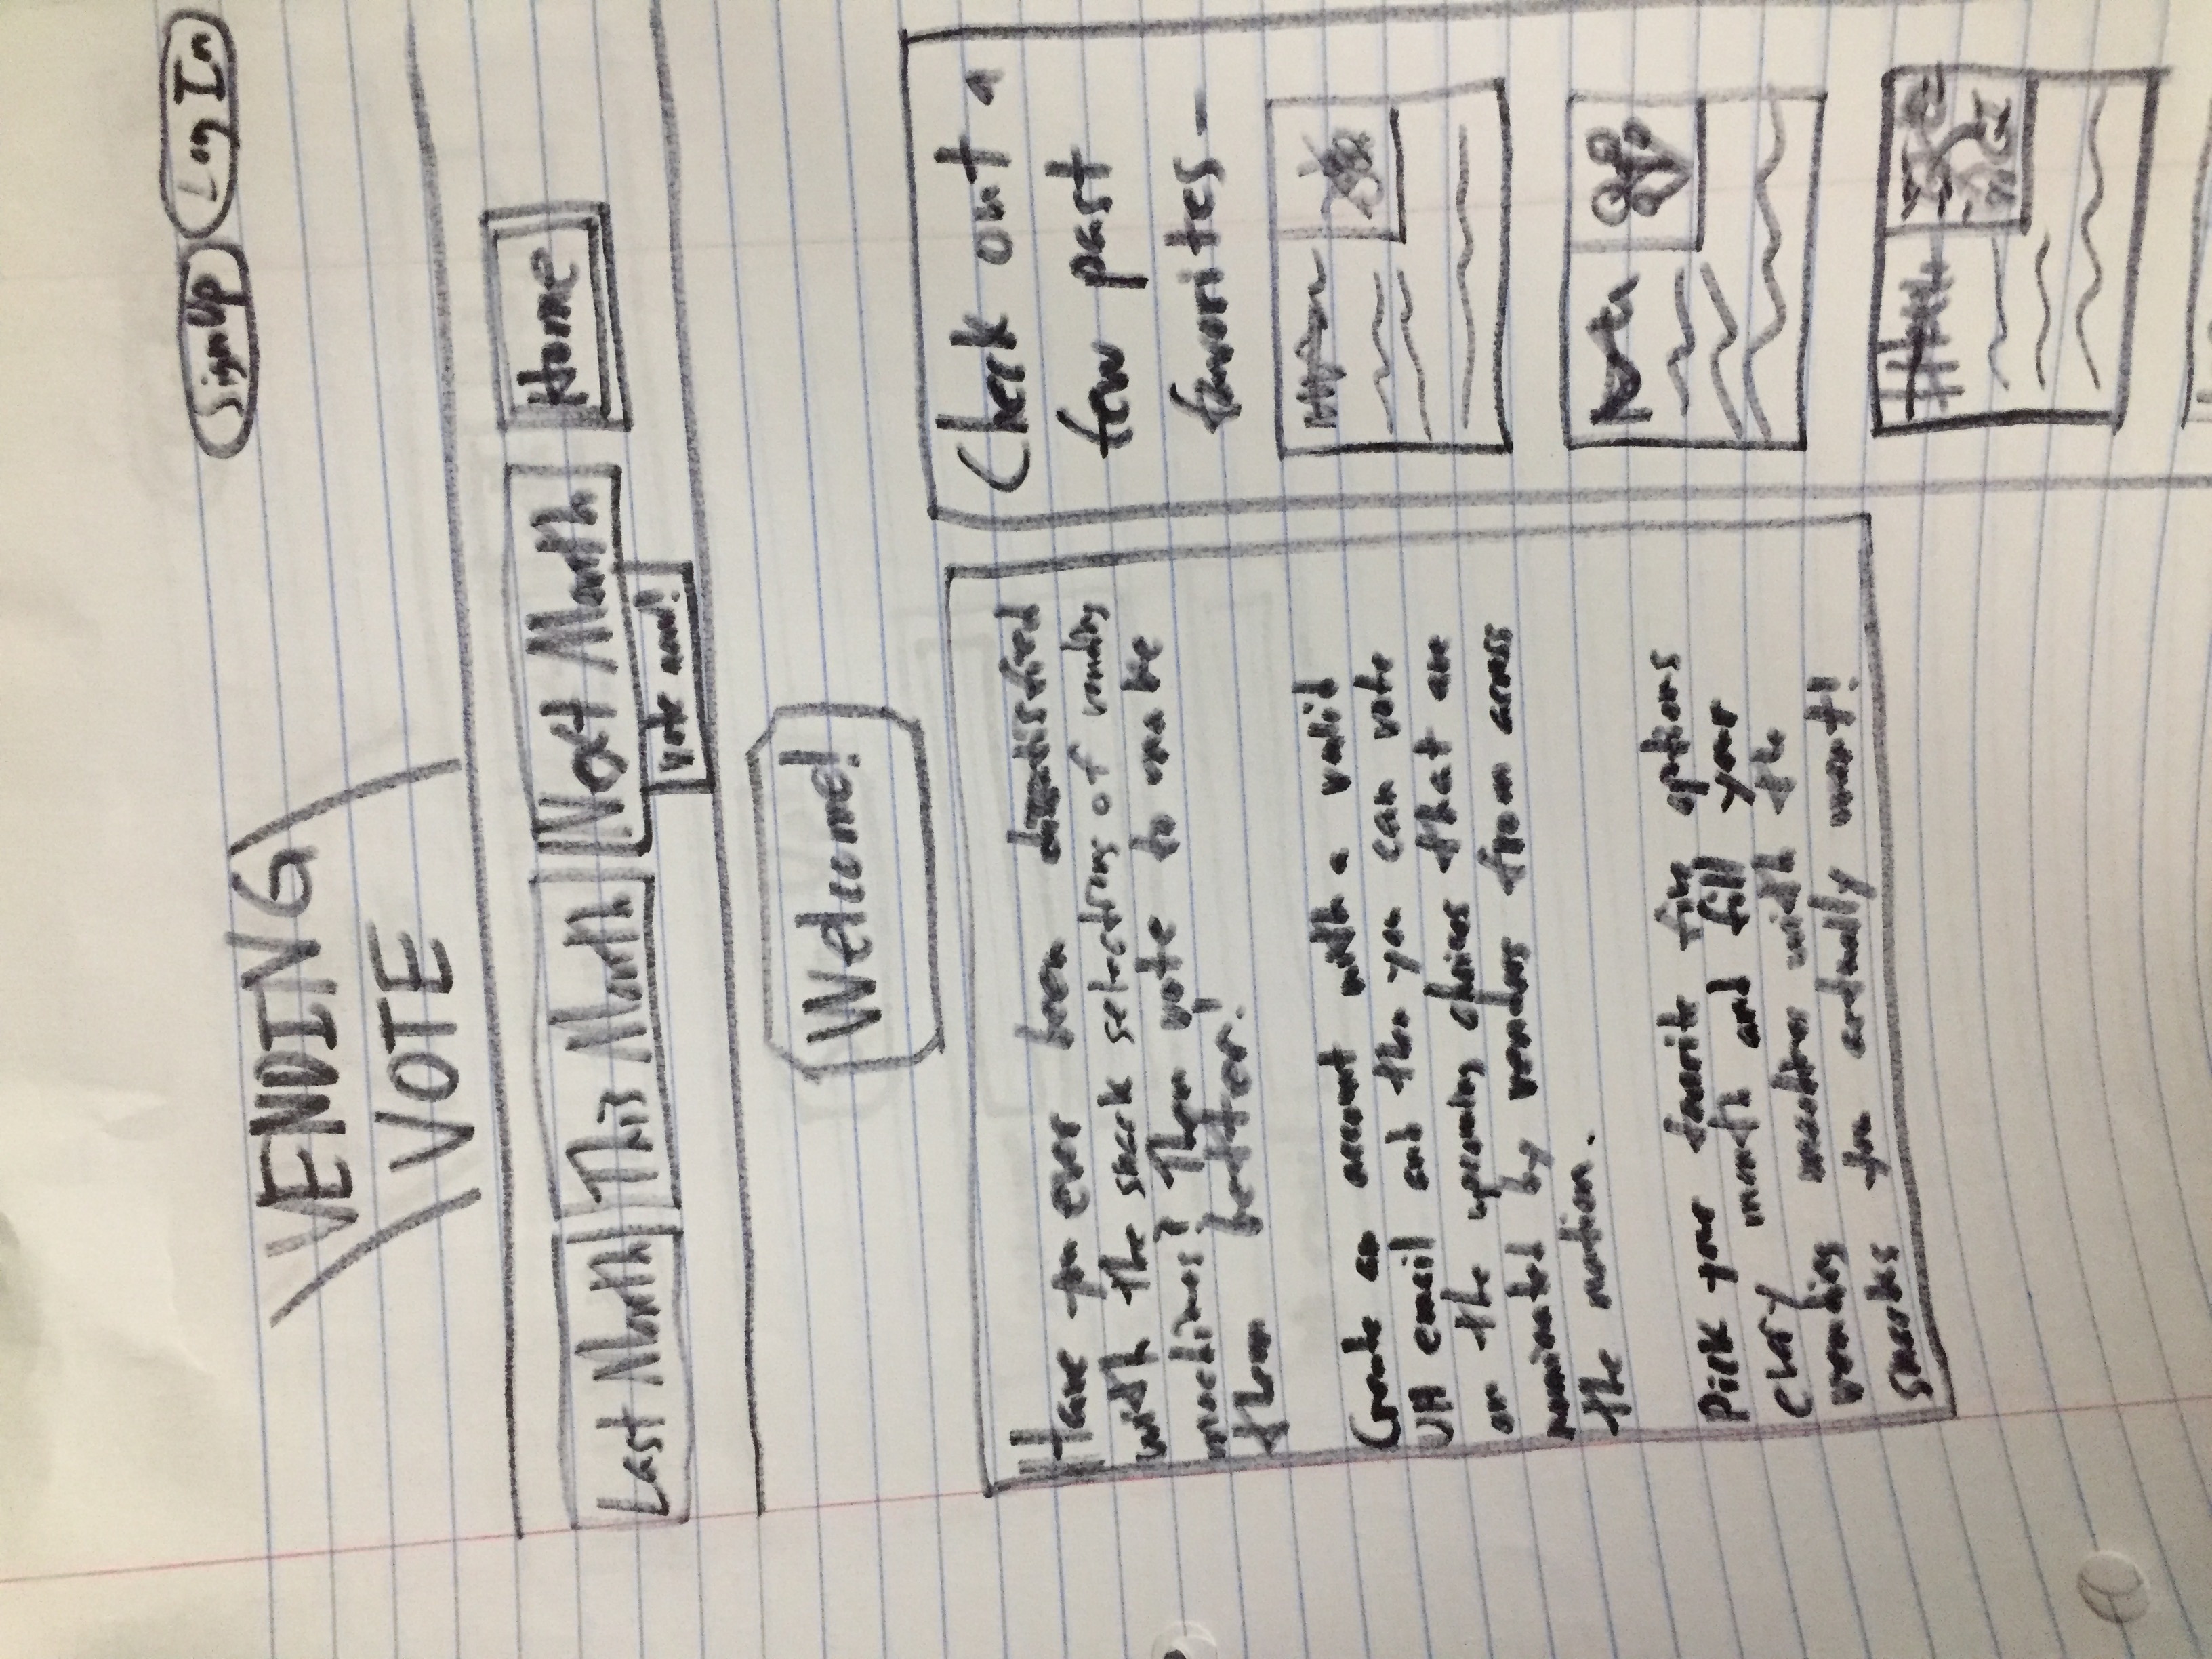 Sign Up Log In
VENDING
VOTE
Last Month This Month Next Month Home
vote now!
Welcome!
Have you ever been dissatisfied
with the snack selections of vending
machines? Then vote to make
them better!
Create an account with a valid
UH email and then you can vote
on the upcoming choices that are
nominated by vendors from across
the nation.
Pick your favorite five options
every month and fill your
vending machines with the
snacks you actually want!
Check out a
few past
favorites-